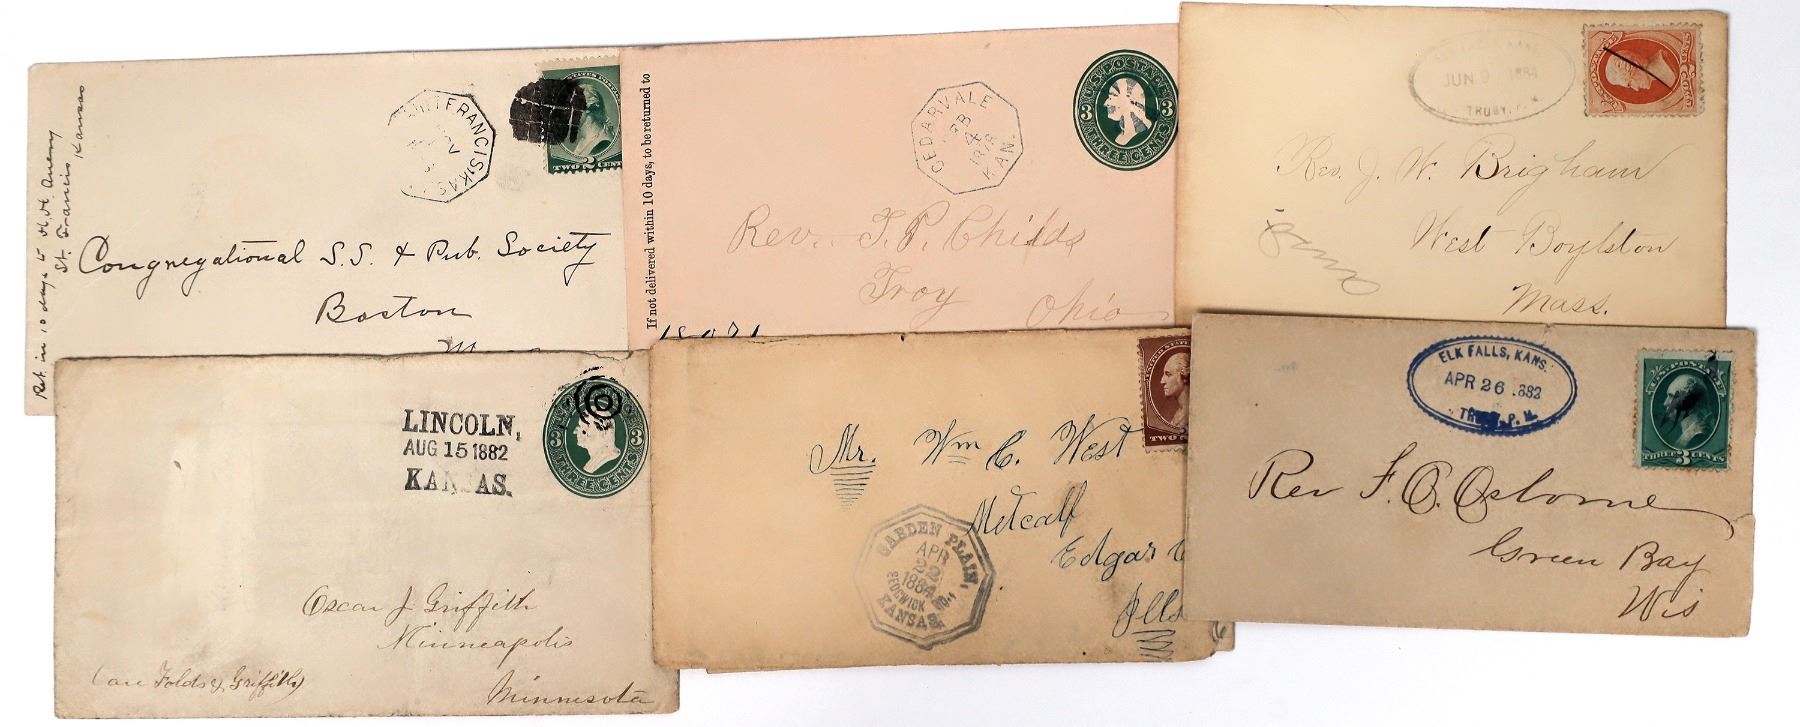 Ret. in 10 days to H.H. Avery
St. Francis Kansas
FRANCIS, KAS
TWO 2 CENT
Congregational S.S. & Pub. Society
Boston
If not delivered within 10 days, to be returned to
CEDARVALE
KAN.
U.S. POSTAGE
3 3
THREE CENTS
Rev. T. P. Childs
Troy
Ohio
JUN 9 1884
TRUBY, P.M.
Rev. J. W. Brigham
West Boylston
Mass.
LINCOLN,
AUG 15 1882
KANSAS.
3 3
THREE CENTS
Oscar J Griffith
Minneapolis
Care Folds & Griffith
Minnesota
UNITED STATES
TWO 2
Mr. Wm C. West
Metcalf
Edgar C
Ills
GARDEN PLAIN,
APR
22
1884
SEDGWICK CO.,
KANSAS
ELK FALLS, KANS.
APR 26 1882
TRUBY, P. M.
U.S. POSTAGE
THREE 3 CENTS
Rev F. C. Osborne
Green Bay
Wis